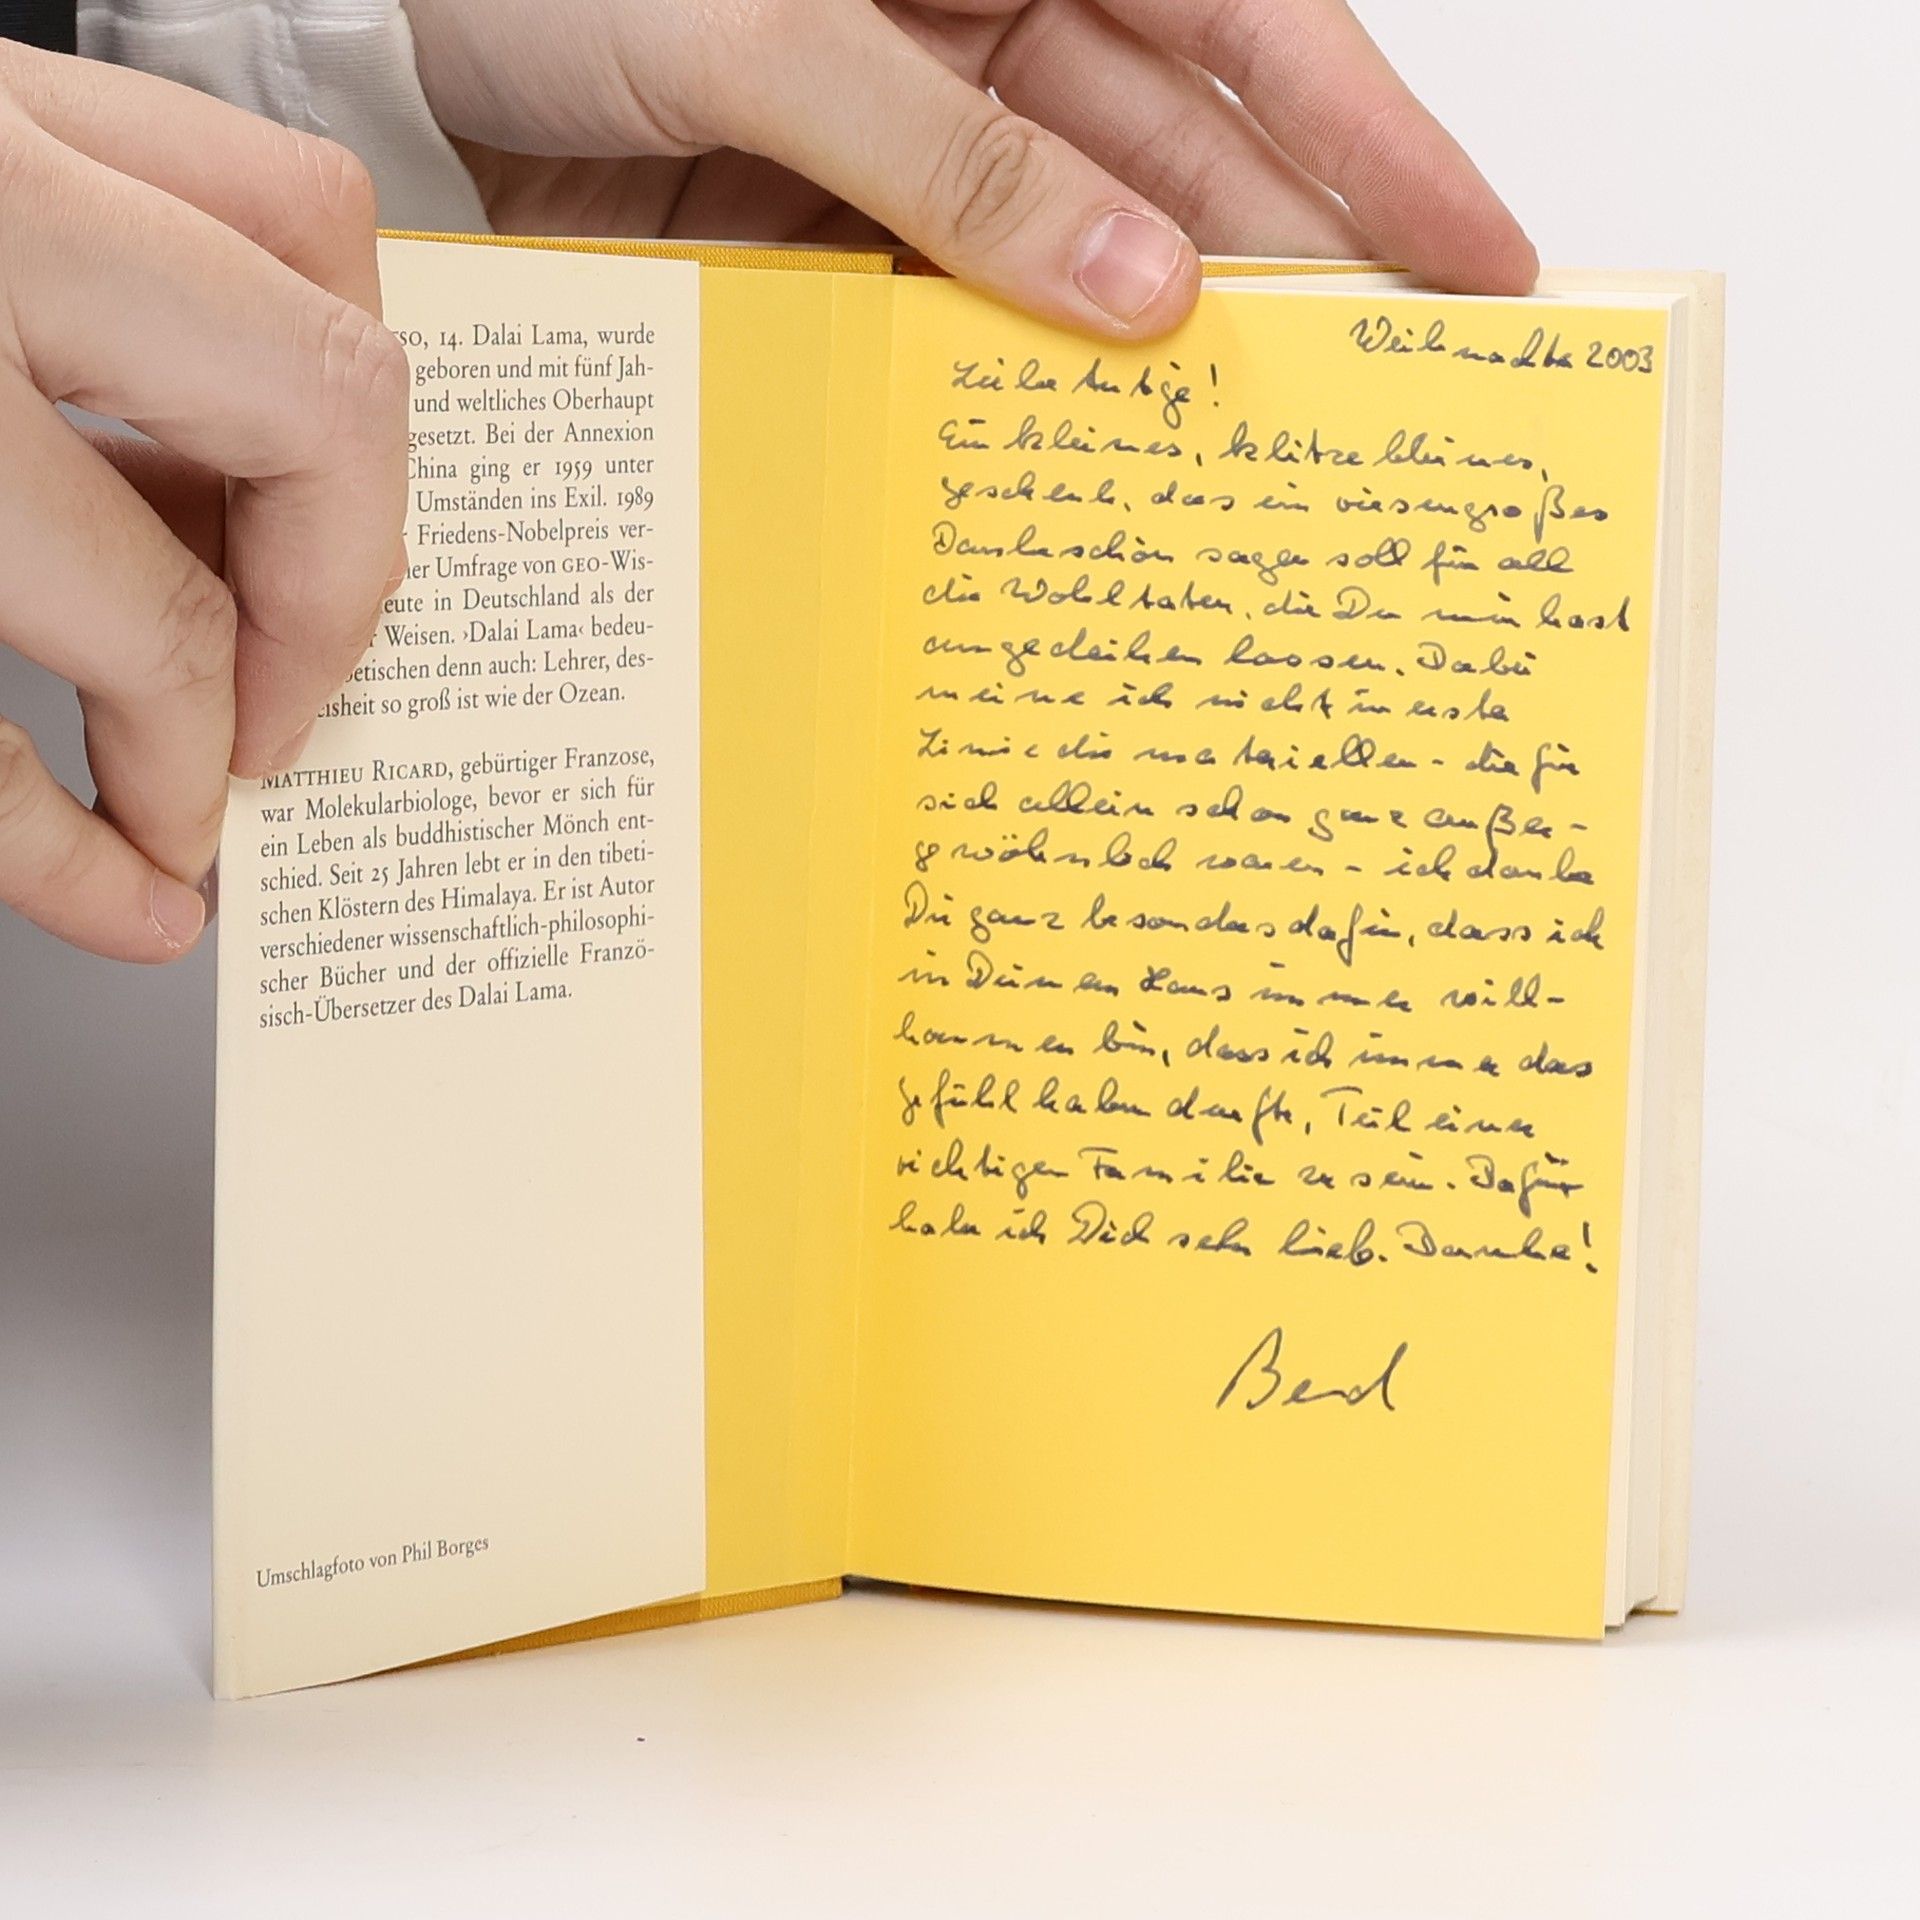 so, 14. Dalai Lama, wurde
geboren und mit fünf Jah-
und weltliches Oberhaupt
gesetzt. Bei der Annexion
China ging er 1959 unter
Umständen ins Exil. 1989
Friedens-Nobelpreis ver-
er Umfrage von GEO-Wis-
eute in Deutschland als der
r Weisen. ›Dalai Lama‹ bedeu-
betischen denn auch: Lehrer, des-
eisheit so groß ist wie der Ozean.
MATTHIEU RICARD, gebürtiger Franzose,
war Molekularbiologe, bevor er sich für
ein Leben als buddhistischer Mönch ent-
schied. Seit 25 Jahren lebt er in den tibeti-
schen Klöstern des Himalaya. Er ist Autor
verschiedener wissenschaftlich-philosophi-
scher Bücher und der offizielle Franzö-
sisch-Übersetzer des Dalai Lama.
Umschlagfoto von Phil Borges
Weihnachten 2003
Liebe Antje!
Ein kleines, klitzekleines,
Geschenk, das ein riesengroßes
Dankeschön sagen soll für all
die Wohltaten, die Du mir hast
angedeihen lassen. Dabei
meine ich nicht in erster
Linie die materiellen - die für
sich allein schon ganz außer-
gewöhnlich waren - ich danke
Dir ganz besonders dafür, dass ich
in Deinem Haus immer will-
kommen bin, dass ich immer das
Gefühl haben durfte, Teil einer
richtigen Familie zu sein. Dafür
habe ich Dich sehr lieb. Danke!
Bernd